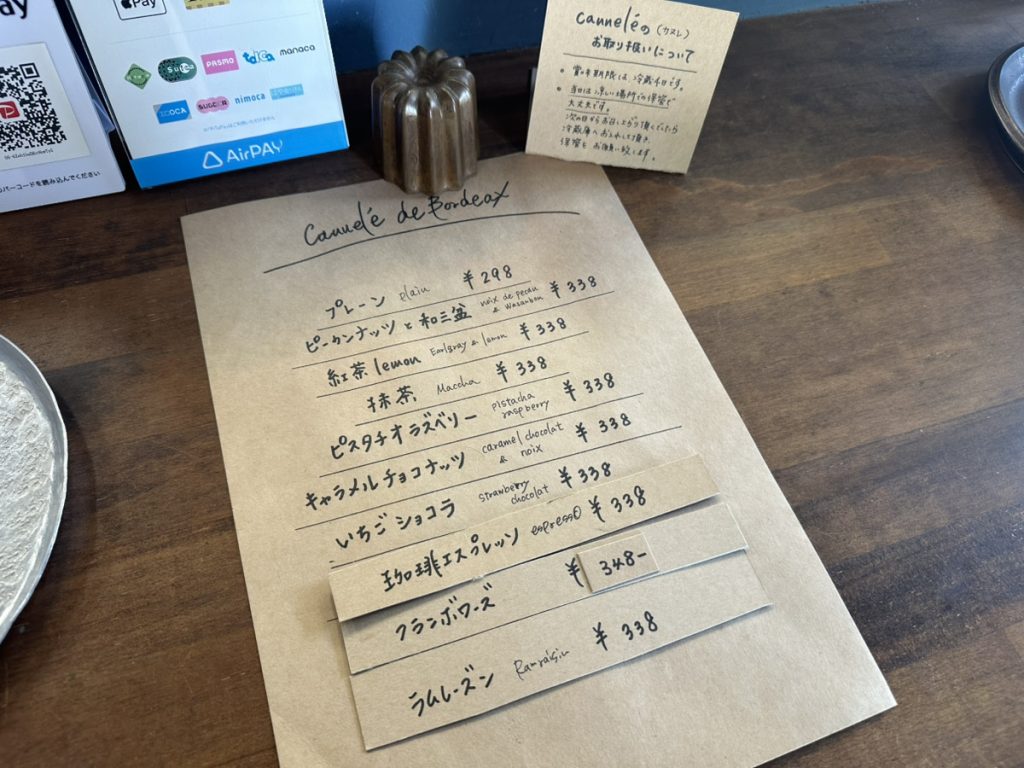 Pay
Pay
Suica
PASMO
toica
manaca
ICOCA
SUGOCA
nimoca
AirPAY
バーコードを読み込んでください
canneléの(カヌレ)
お取り扱いについて
• 賞味期限は、冷蔵4日です。
• 当日は涼しい場所での保管で
大丈夫です。
次の日からお召し上がり頂くでしたら
冷蔵庫へお入れして頂き、
保管をお願い致します。
Cannelé de Bordeax
プレーン plain ¥298
ピーカンナッツと和三盆 noix de pecan & Wasanbon ¥338
紅茶lemon Earlgray & lemon ¥338
抹茶 Maccha ¥338
ピスタチオラズベリー pistacha raspberry ¥338
キャラメルチョコナッツ caramel chocolat & noix ¥338
いちごショコラ strawberry chocolat ¥338
珈琲エスプレッソ espresso ¥338
フランボワーズ ¥348-
ラムレーズン Ramraisin ¥338